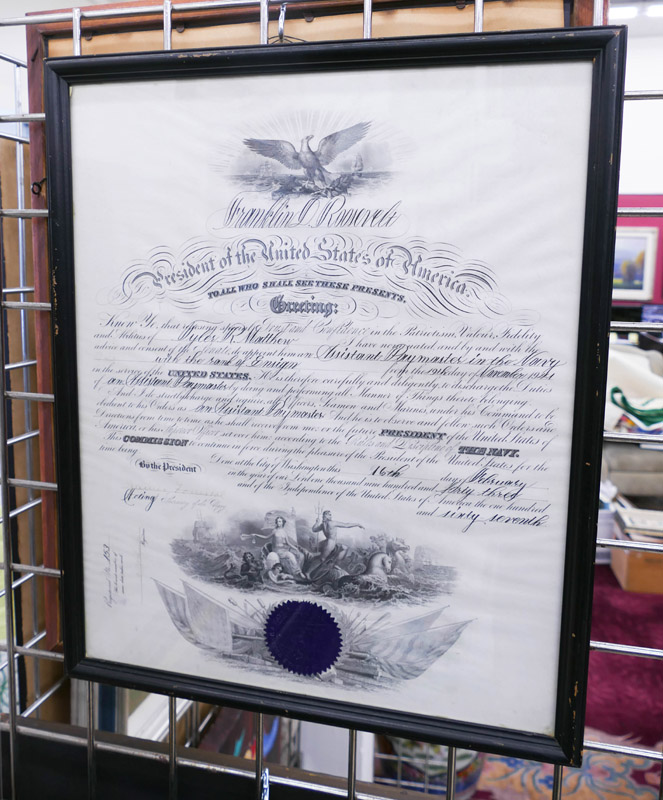 Franklin D. Roosevelt
President of the United States of America.
TO ALL WHO SHALL SEE THESE PRESENTS,
Greeting:
Know Ye, that reposing special Trust and Confidence in the Patriotism, Valour, Fidelity
and Abilities of Tyler R. Matthew I have nominated and by and with the
advice and consent of the Senate do appoint him an Assistant Paymaster in the Navy
with the rank of Ensign from the day of November
in the service of the UNITED STATES. He is therefore carefully and diligently to discharge the duties
of an Assistant Paymaster by doing and performing all Manner of Things thereto belonging.
And I do strictly charge and require all Officers, Seamen and Marines, under his Command to be
obedient to his Orders as an Assistant Paymaster And he is to observe and follow such Orders and
Directions from time to time as he shall receive from me, or the future PRESIDENT of the United States of
America or his set over him, according to the THE NAVY.
This COMMISSION to continue in force during the pleasure of the President of the United States for the
time being.
Done at the City of Washington this 16th day of February
By the President
in the year of our Lord one thousand nine hundred and forty three
and of the Independence of the United States of America, the one hundred
and sixty seventh
Acting